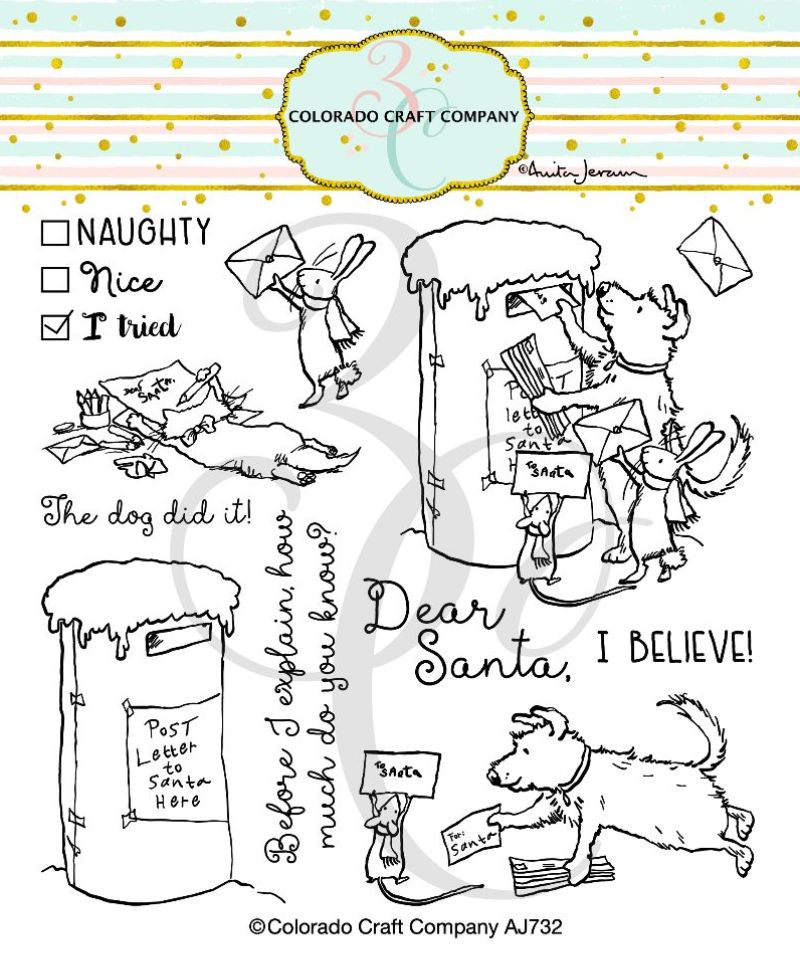 3C
COLORADO CRAFT COMPANY
©Anita Jeram
NAUGHTY
Nice
I tried
Dear
Santa,
Post
letter
to
Santa
H
To
SAnta
The dog did it!
Before I explain, how
much do you know?
Dear
Santa,
I BELIEVE!
PoST
Letter
to
Santa
Here
To
SAnta
For:
Santa
©Colorado Craft Company AJ732